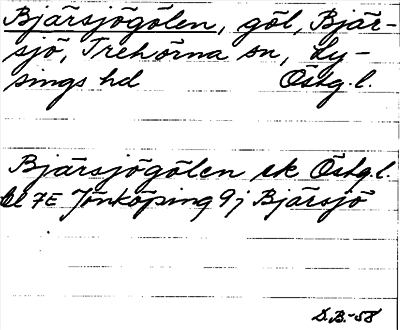 Bjärsjögölen, göl, Bjär-
sjö, Trehörna sn, Ly-
sings hd Östg.l.
Bjärsjögölen ek Östg.l.
bl 7E Jönköping 9j Bjärsjö
D.B.-58